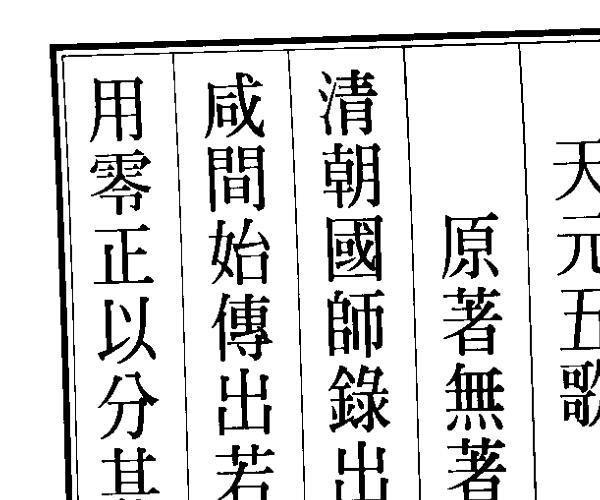 天元五歌
原著無著
清朝國師錄出
咸間始傳出若
用零正以分其